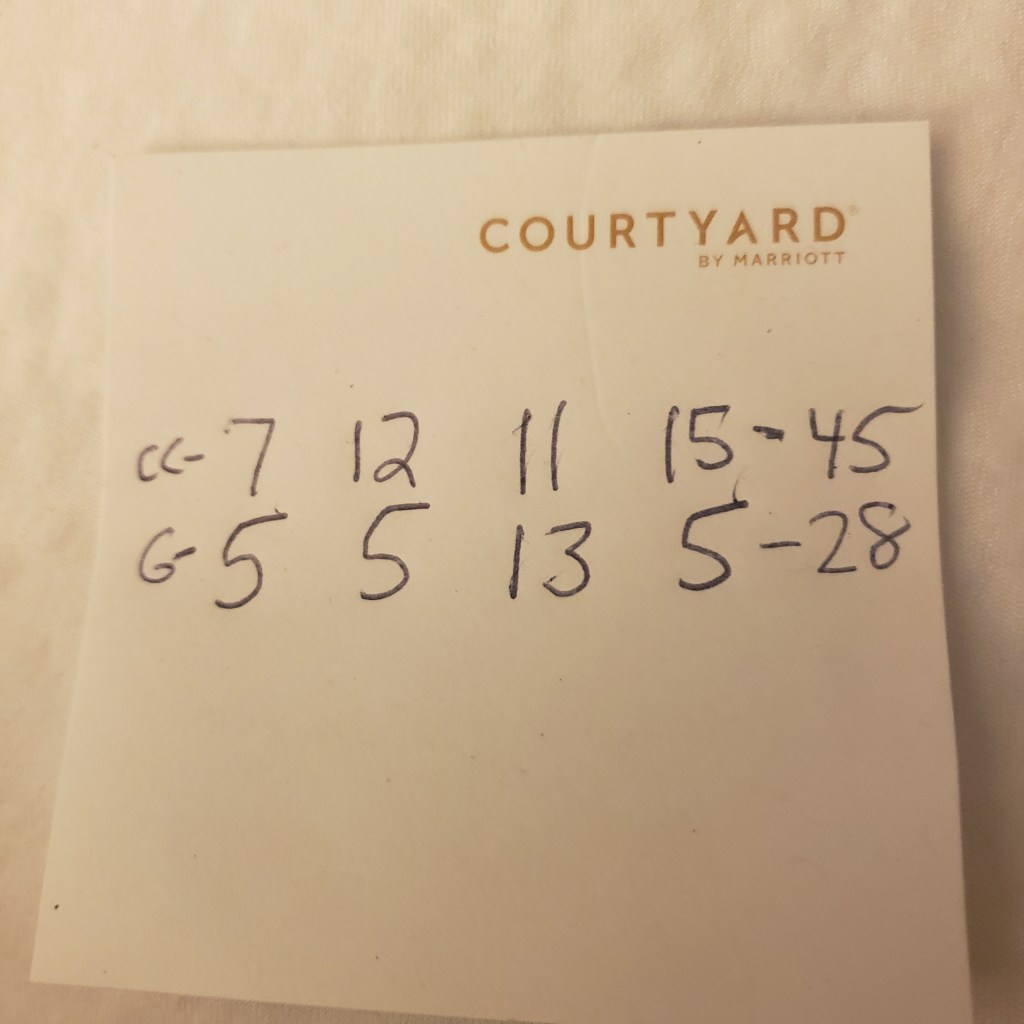 COURTYARD®
BY MARRIOTT
CC- 7 12 11 15 - 45
G- 5 5 13 5 - 28